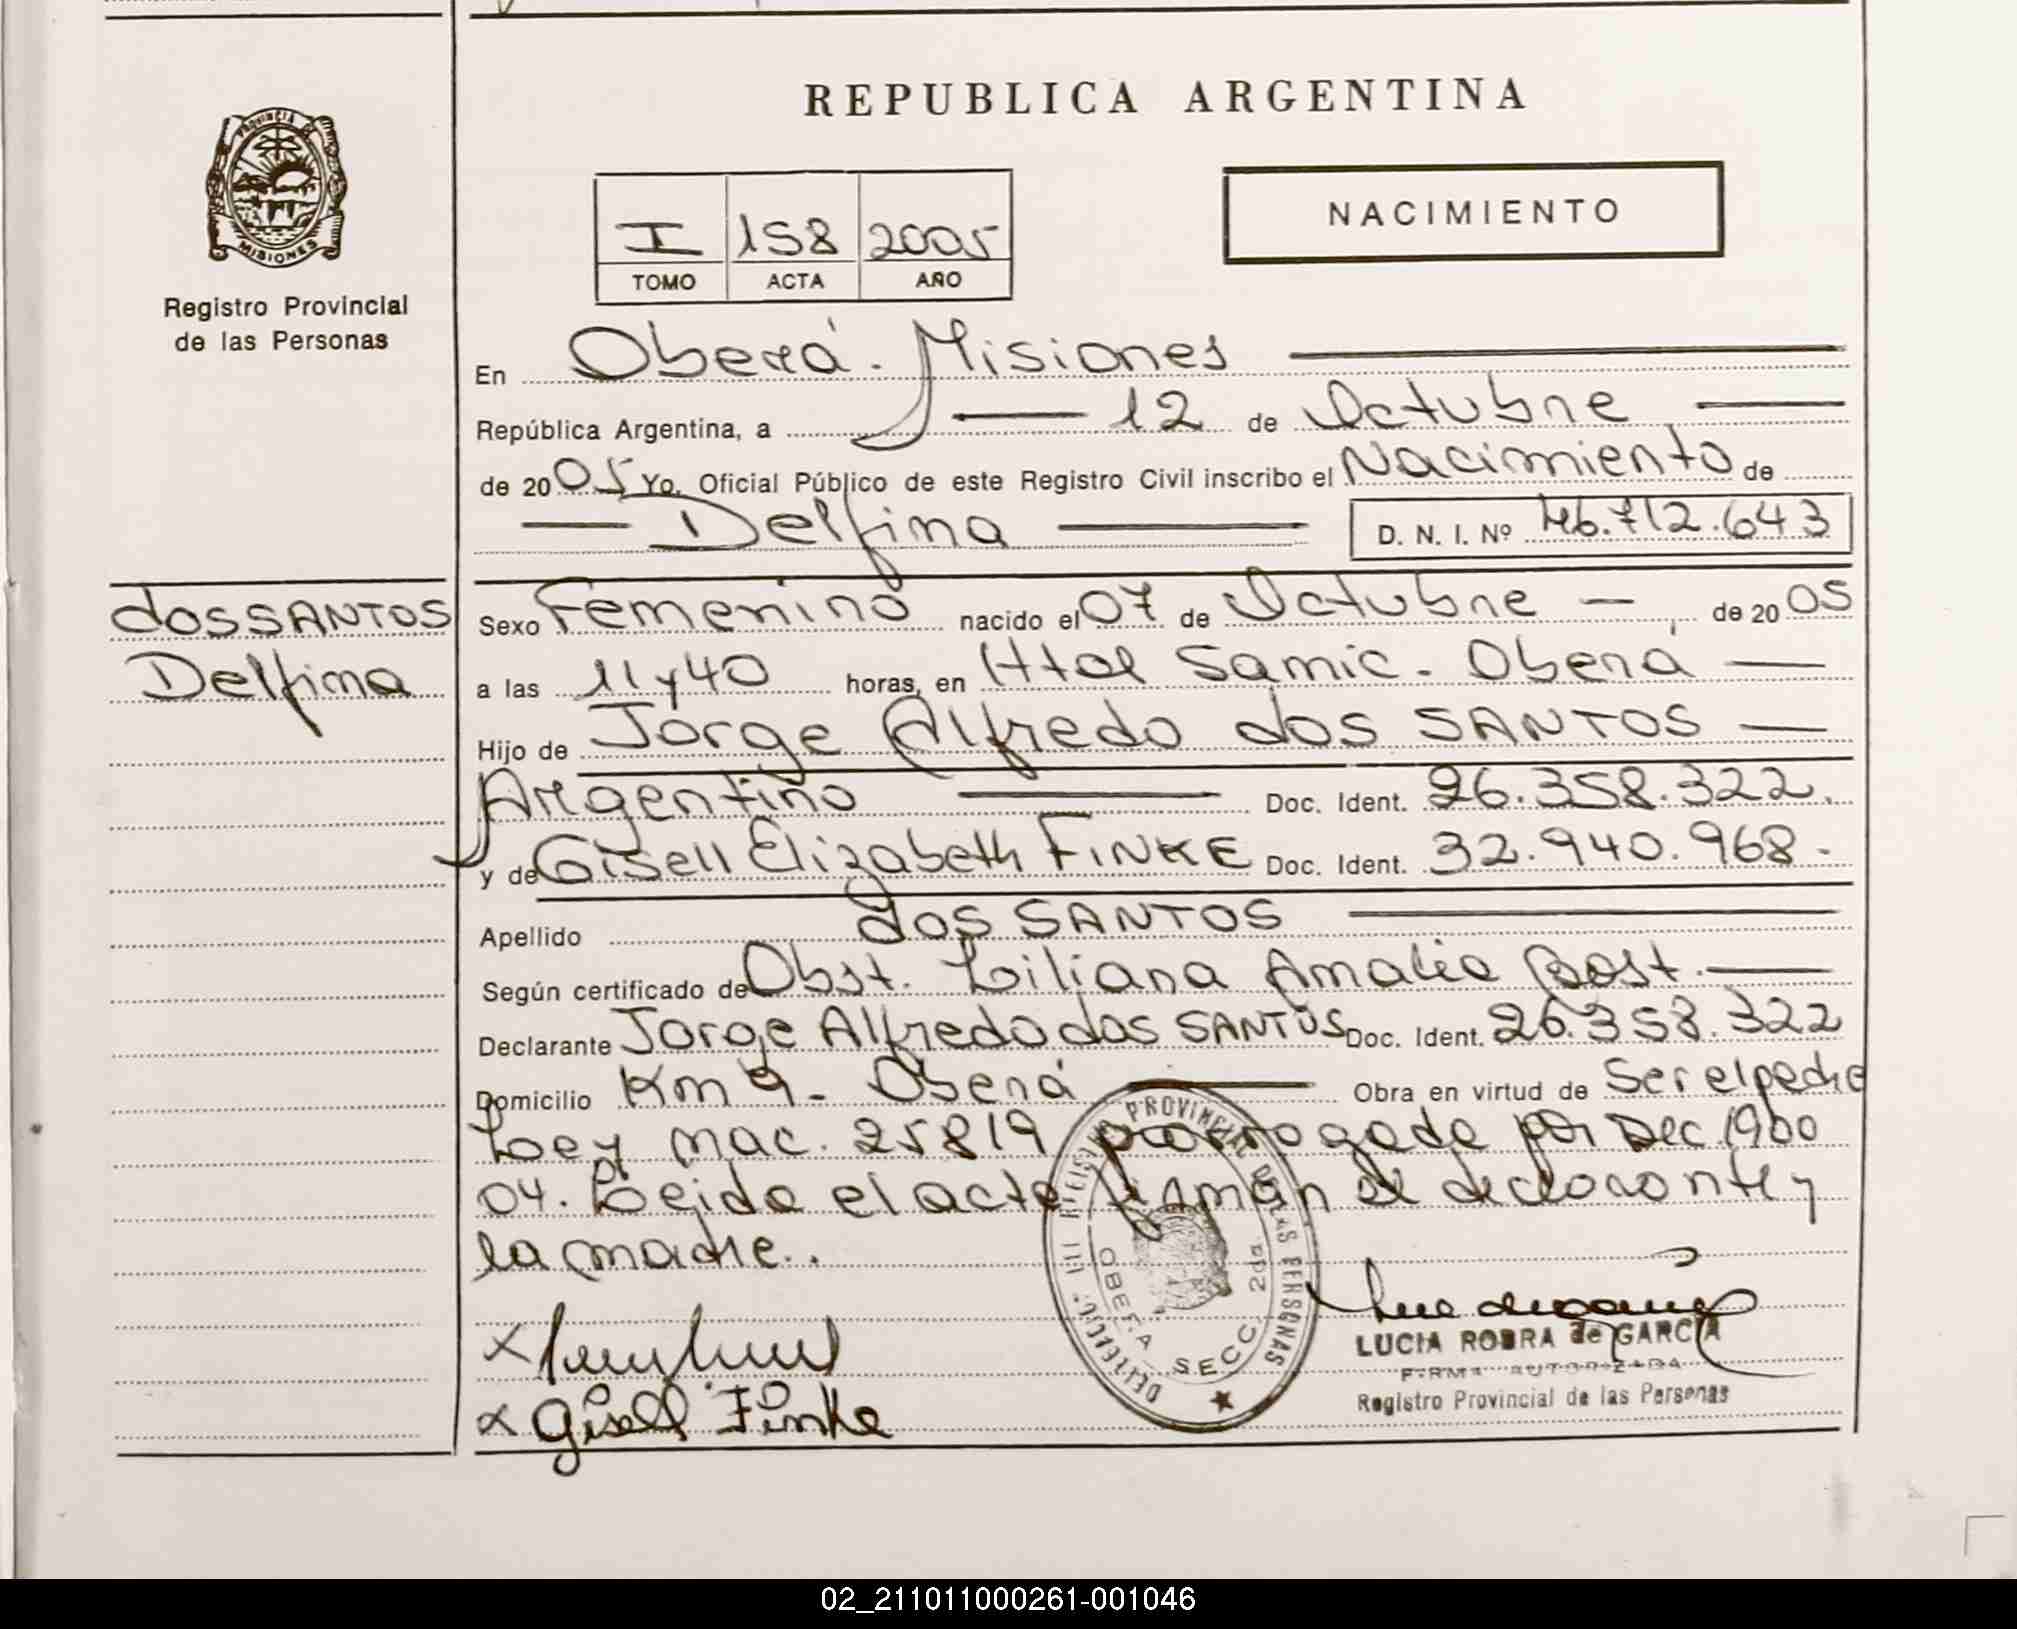 REPUBLICA ARGENTINA
PROVINCIA DE
MISIONES
Registro Provincial
de las Personas
I 158 2005
TOMO ACTA AÑO
NACIMIENTO
En Oberá. Misiones
República Argentina, a 12 de Octubre
de 2005 Yo, Oficial Público de este Registro Civil inscribo el Nacimiento de
Delfina D. N. I. Nº 46.712.643
dos SANTOS
Delfina
Sexo Femenino nacido el 07 de Octubre de 2005
a las 11 y 40 horas, en Htal Samic. Oberá
Hijo de Jorge Alfredo dos SANTOS
Argentino Doc. Ident. 26.358.322.
y de Gisell Elizabeth FINKE Doc. Ident. 32.940.968.
Apellido dos SANTOS
Según certificado de Obst. Liliana Amalia
Declarante Jorge Alfredo dos SANTOS Doc. Ident. 26.358.322
Domicilio Km 9. Oberá Obra en virtud de Ser el padre
Ley nac. 25819 prorrogada por Dec. 1900
04. Leída el acta firman el declarante y
la madre..
PROVINCIAL DE LAS PERSONAS
OBERA SECC. 2da.
x
x Gisell Finke
LUCIA ROBRA de GARCIA
FIRMA AUTORIZADA
Registro Provincial de las Personas
02_211011000261-001046